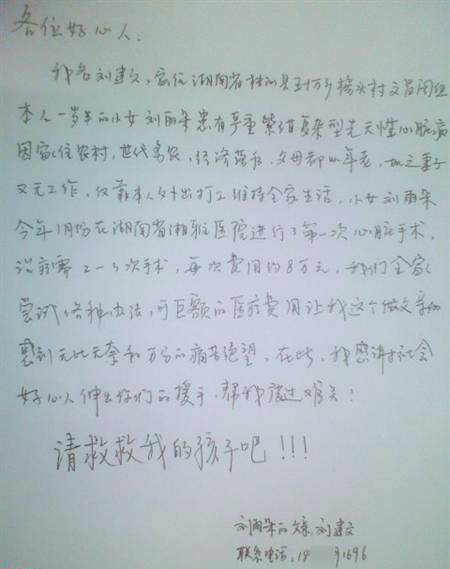 各位好心人：
我名刘建文，家住湖南省株洲县到万乡檀头村文昌阁组
本人一岁半的小女刘雨朵患有严重紫绀复杂型先天性心脏病
因家住农村，世代务农，经济落后，父母都以年老，加之妻子
又无工作，仅靠本人外出打工维持全家生活，小女刘雨朵
今年1月份在湖南省湘雅医院进行了第一次心脏手术，
治疗需2-3次手术，每次费用约8万元，我们全家
尝试了各种办法，可巨额的医疗费用让我这个做父亲的
感到无比无奈和万分的痛苦绝望，在此，我恳请社会
好心人伸出你们的援手，帮我渡过难关！
请救救我的孩子吧！！！
刘雨朵的父亲，刘建文
联系电话，18 91696